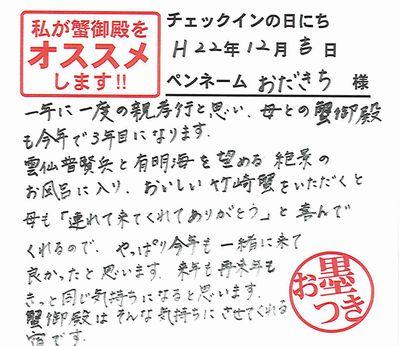 私が蟹御殿を
オススメ
します!!
チェックインの日にち
H22年12月吉日
ペンネーム おだきち 様
一年に一度の親孝行と思い、母との蟹御殿
も今年で3年目になります。
雲仙普賢岳と有明海を望める絶景の
お風呂に入り、おいしい竹崎蟹をいただくと
母も「連れて来てくれてありがとう」と喜んで
くれるので、やっぱり今年も一緒に来て
良かったと思います。来年も再来年も
きっと同じ気持ちになると思います。
蟹御殿はそんな気持ちにさせてくれる
宿です。
お墨
つき